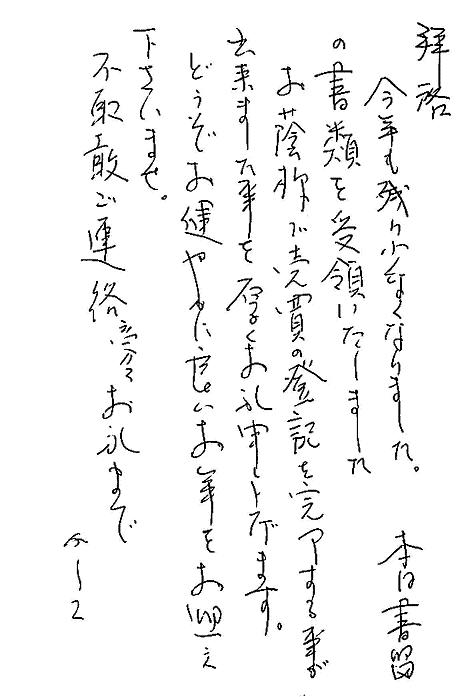 拝啓
今年も残り少なくなりました。 本日書留
の書類を受領いたしました
お蔭様で売買の登記を完了する事が
出来ました事を厚くお礼申し上げます。
どうぞお健やかに良いお年をお迎え
下さいませ。
不取敢ご連絡旁々お礼まで
かしこ